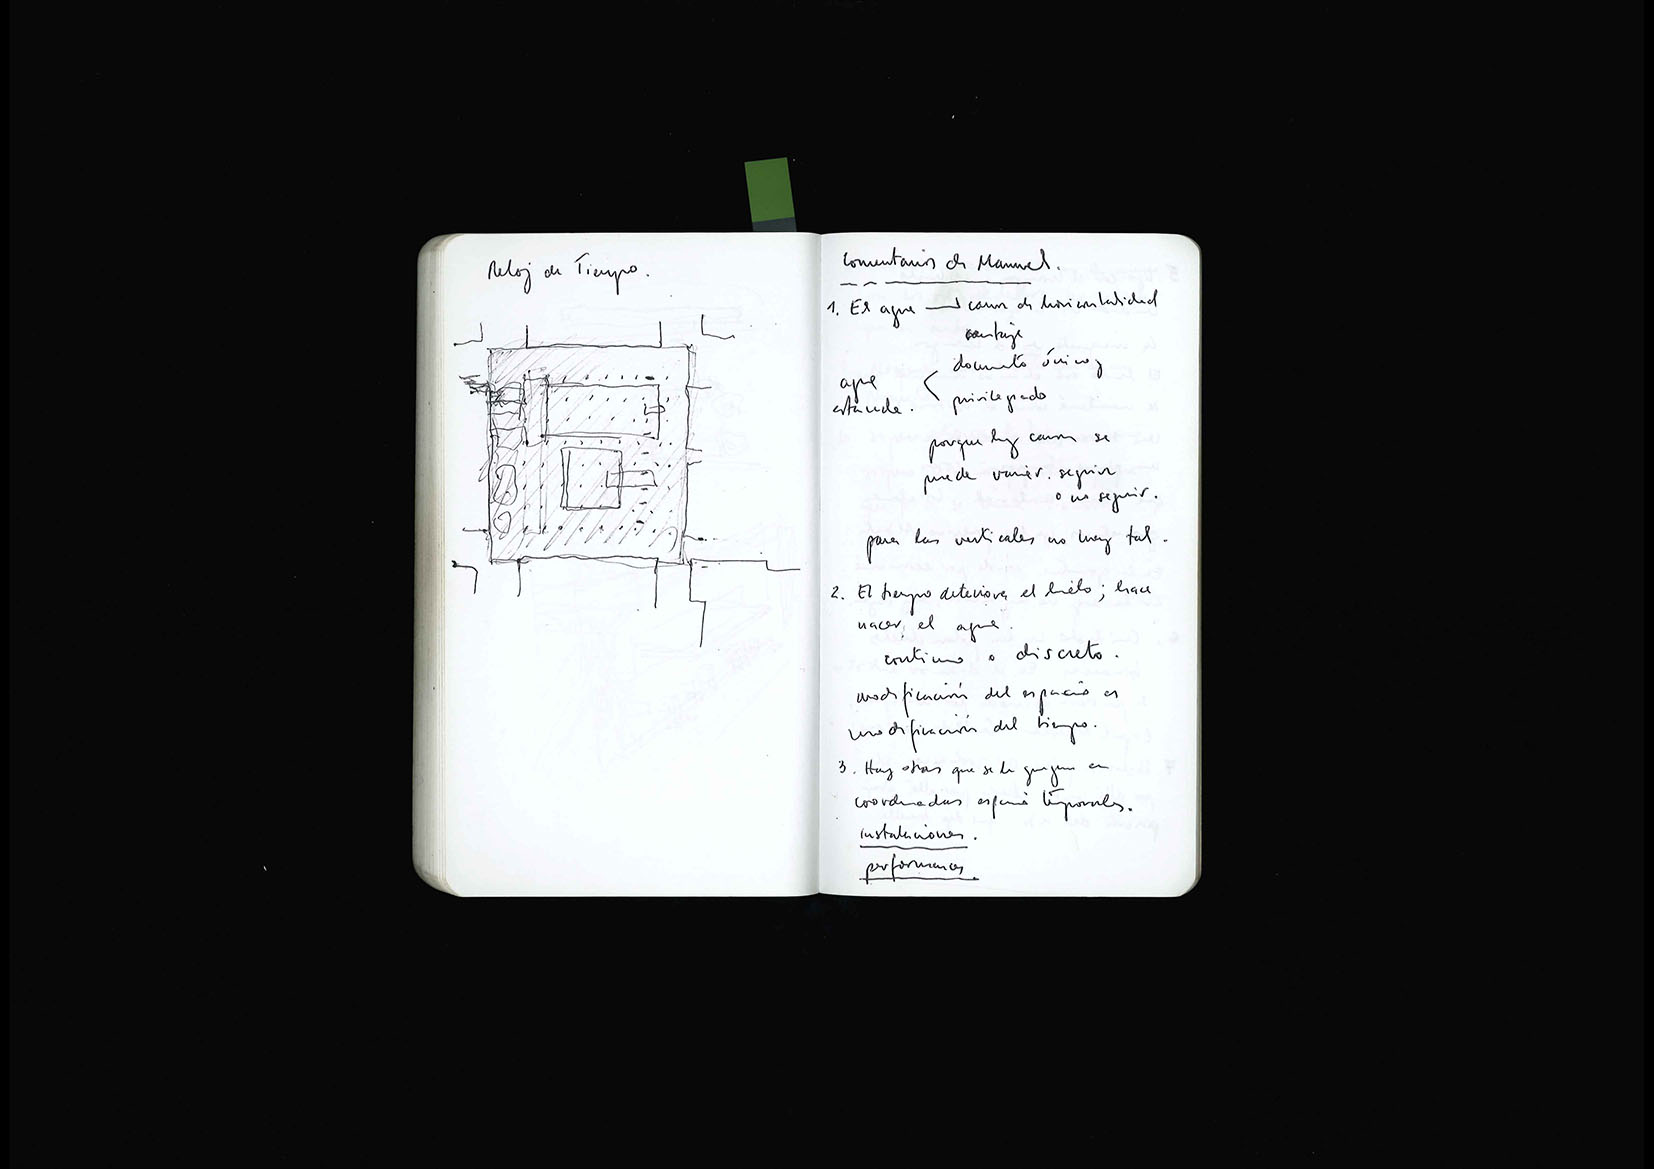 Reloj de Tiempo.
Comentarios de Manuel.
1. El agua → causa de horizontalidad
ventaja
documento único y
privilegiado
agua
estancada.
porque hay causa se
puede variar. seguir
o no seguir.
para las verticales no hay tal.
2. El tiempo deteriora el hielo; hace
nacer el agua.
continuo o discreto.
modificación del espacio es
modificación del tiempo.
3. Hay obras que se en
coordenadas espacio temporales.
instalaciones.
performances